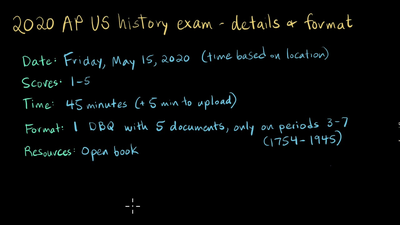 2020 AP US history exam - details & format
Date: Friday, May 15, 2020 (time based on location)
Scores: 1-5
Time: 45 minutes (+ 5 min to upload)
Format: 1 DBQ with 5 documents, only on periods 3-7
(1754-1945)
Resources: Open book